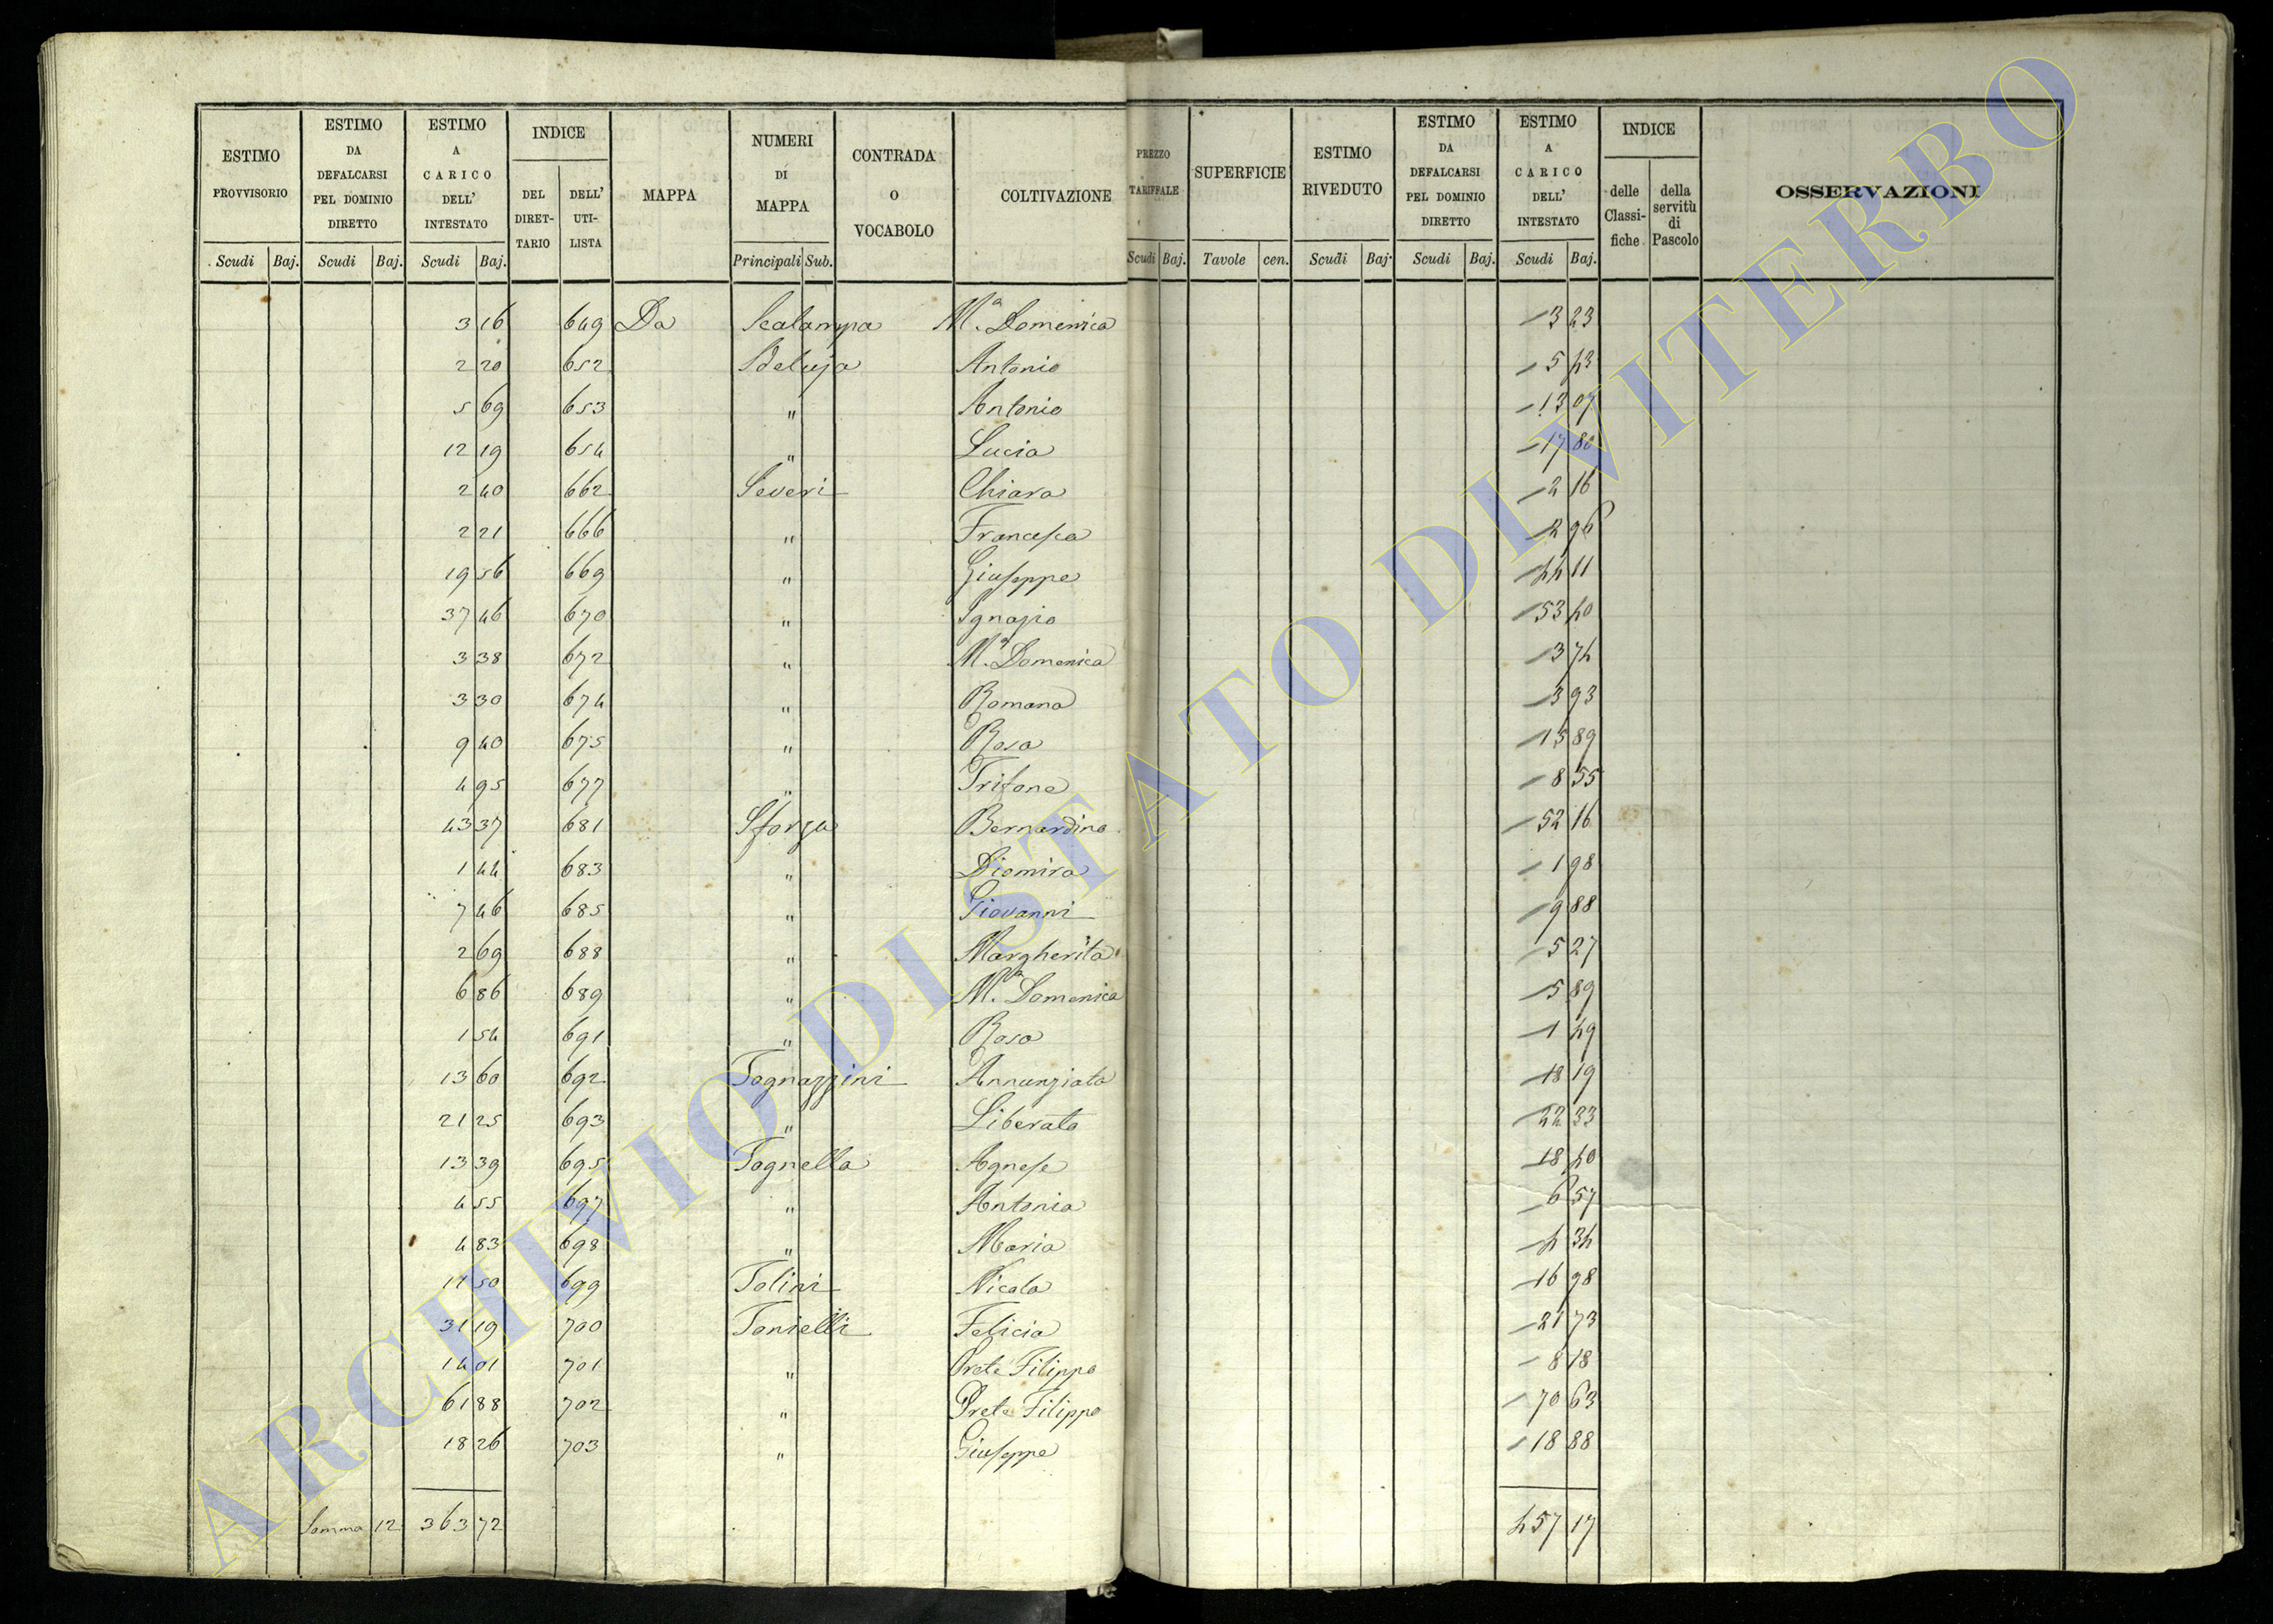 ESTIMO PROVVISORIO
ESTIMO DA DEFALCARSI PEL DOMINIO DIRETTO
ESTIMO A CARICO DELL' INTESTATO
INDICE
DEL DIRET-TARIO
DELL' UTI-LISTA
MAPPA
NUMERI DI MAPPA
CONTRADA O VOCABOLO
COLTIVAZIONE
PREZZO TARIFFALE
SUPERFICIE
ESTIMO RIVEDUTO
ESTIMO DA DEFALCARSI PEL DOMINIO DIRETTO
ESTIMO A CARICO DELL' INTESTATO
INDICE
delle Classi-fiche
della servitù di Pascolo
OSSERVAZIONI
Scudi Baj. Scudi Baj. Scudi Baj. Principali Sub. Scudi Baj. Tavole cen. Scudi Baj. Scudi Baj. Scudi Baj.
3 16 649 Da Scalampa M.a Domenica 3 23
2 20 652 Sdeluja Antonio 5 43
5 69 653 " Antonio 13 07
12 19 654 " Lucia 17 80
2 40 662 Severi Chiara 2 16
2 21 666 " Francesca 2 96
19 56 669 " Giuseppe 44 11
37 46 670 " Ignazio 53 40
3 38 672 " M.a Domenica 3 74
3 30 674 " Romana 3 93
9 40 675 " Rosa 15 89
4 95 677 " Trifone 8 55
43 37 681 Sforza Bernardino 52 16
1 44 683 " Diomira 1 98
7 46 685 " Giovanni 9 88
2 69 688 " Margherita 5 27
6 86 689 " M.a Domenica 5 89
1 54 691 " Rosa 1 49
13 60 692 Tognazzini Annunziata 18 19
21 25 693 " Liberata 22 33
13 39 695 Tognella Agnese 18 40
4 55 697 " Antonia 6 57
4 83 698 " Maria 4 34
11 50 699 Tolini Nicola 16 98
31 19 700 Tonielli Felicia 21 73
14 01 701 " Prete Filippo 8 18
61 88 702 " Prete Filippo 70 63
18 26 703 " Giuseppe 18 88
Somma 12 363 72 457 17
ARCHIVIO DI STATO DI VITERBO